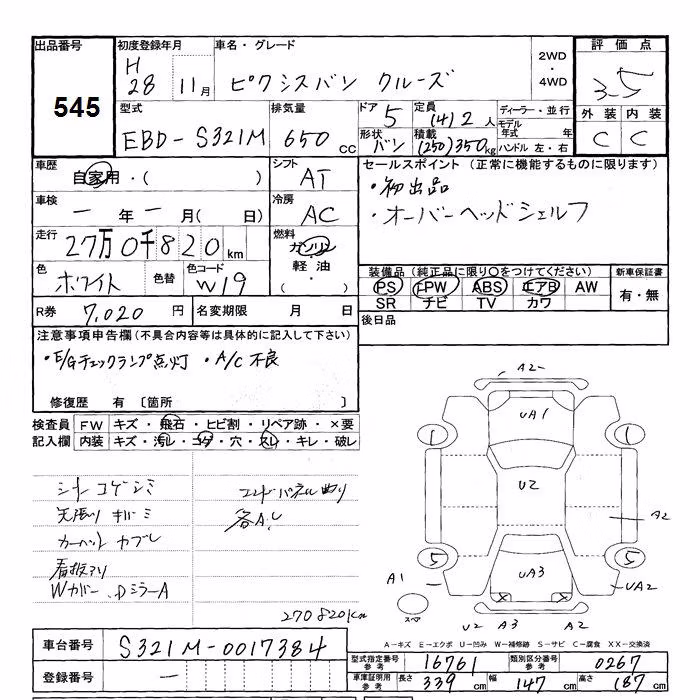 出品番号
545
初度登録年月
H
28 11月
車名・グレード
ピクシスバン クルーズ
2WD
・
4WD
評価点
3.5
外装 内装
C C
型式
EBD-S321M
排気量
650 cc
ドア
5
定員
(4) 2 人
形状
バン
積載
(250) 350 kg
ディーラー・並行
モデル
年式 年
ハンドル 左・右
車歴
自家用・( )
シフト
AT
車検
ー年ー月(日)
冷房
AC
走行
27万0千820km
燃料
ガソリン
軽油
( ・ )
色
ホワイト
色替
色コード
W19
R券 7,020 円
名変期限 月 日
セールスポイント (正常に機能するものに限ります)
・初出品
・オーバーヘッドシェルフ
装備品(純正品に限り○をつけてください)
PS PW ABS エアB AW
SR ナビ TV カワ
新車保証書
有・無
後日品
注意事項申告欄(不具合内容等は具体的に記入して下さい)
・E/Gチェックランプ点灯 ・A/C不良
修復歴 有 〔箇所 〕
検査員 FW キズ・飛石・ヒビ割・リペア跡・×要
記入欄 内装 キズ・汚レ・コゲ・穴・スレ・キレ・破レ
シート コゲシミ
天張り キバミ
カーペット カブレ
看板アリ
Wカバー、DミラーA
エンドパネル曲り
各A.U
270820km
A2
UA1
1 1
U2
A2
5 5
A1
UA3
UA2
スペア
U2 A3 A2
A-キズ E-エクボ U-凹み W-補修跡 S-サビ C-腐食 XX-交換済
車台番号 S321M-0017384
登録番号 ー
型式指定番号
参考
16761
類別区分番号
参考
0267
車庫証明用
参考
長さ 339 cm 幅 147 cm 高さ 187 cm